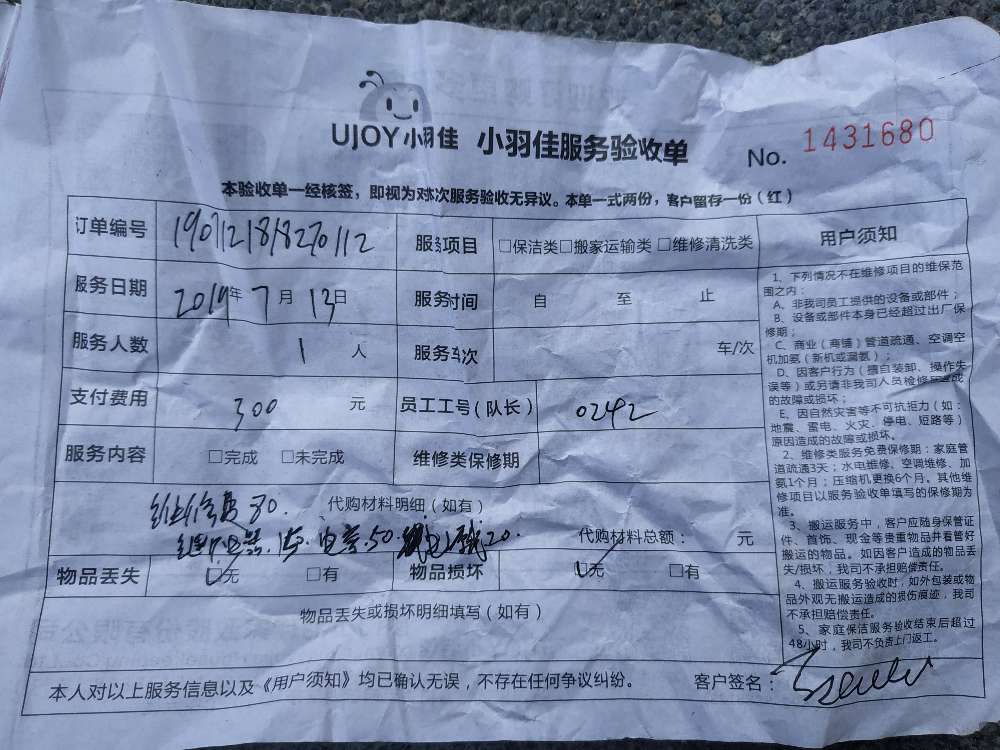 UJOY小羽佳 小羽佳服务验收单 No. 1431680
本验收单一经核签，即视为对本次服务验收无异议。本单一式两份，客户留存一份（红）
订单编号 1907121818270112 服务项目 □保洁类□搬家运输类 □维修清洗类
服务日期 2019年 7月 13日 服务时间 自 至 止
服务人数 1 人 服务车次 车/次
支付费用 300 元 员工工号（队长） 0242
服务内容 □完成 □未完成 维修类保修期
维修费80. 代购材料明细（如有）
继电器 电容.50 20. 代购材料总额： 元
物品丢失 □无 □有 物品损坏 □无 □有
物品丢失或损坏明细填写（如有）
本人对以上服务信息以及《用户须知》均已确认无误，不存在任何争议纠纷。 客户签名：
用户须知
1、下列情况不在维修项目的维保范
围之内：
A、非我司员工提供的设备或部件；
B、设备或部件本身已经超过出厂保
修期；
C、商业（商铺）管道疏通、空调空
机加氨（新机或漏氨）；
D、因客户行为（擅自装卸、操作失
误等）或另请非我司人员检修造成
的故障或损坏；
E、因自然灾害等不可抗拒力（如：
地震、雷电、火灾、停电、短路等）
原因造成的故障或损坏。
2、维修类服务免费保修期：家庭管
道疏通3天；水电维修、空调维修、加
氨1个月；压缩机更换6个月。其他维
修项目以服务验收单填写的保修期为
准。
3、搬运服务中，客户应随身保管证
件、首饰、现金等贵重物品并看管好
搬运的物品。如因客户造成的物品丢
失/损坏，我司不承担赔偿责任。
4、搬运服务验收时，如外包装或物
品外观无搬运造成的损伤痕迹，我司
不承担赔偿责任。
5、家庭保洁服务验收结束后超过
48小时，我司不负责上门返工。